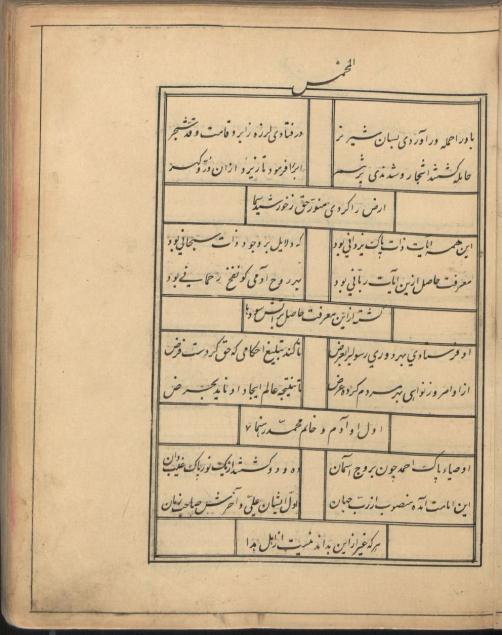 المخمس
باد را حمله ور آوردی بسان شیر نر در فتادی لرزه زا برو قامت و قد شجر
حامله گشتند اشجار و شدندی پر ثمر ابر را فرمود تا ریزد از آن در و گهر
ارض را کردی منور حق ز خورشید سما
این همه آیات ذات پاک یزدانی بود که دلایل بر وجود ذات سبحانی بود
معرفت حاصل از این آیات ربانی بود بهر روح آدمی کو نفخ رحمانی بود
گشته از این معرفت حاصل
او فرستادی بهر دوری رسولی بالعرض تا کند تبلیغ احکامی که حق کردست فرض
از اوامر وز نواهی بهر مردم کرده عرض تا نتیجه عالم ایجاد او ناید بحرض
اول او آدم و خاتم محمد رهنما
اوصیاء پاک احمد چون بروج آسمان ده و دو گشته از یک نور پاک غیب دان
این امامت آمده منصوب از رب جهان اول ایشان علی و آخرش صاحب زمان
هر که غیر از این بداند نیست از اهل هدا